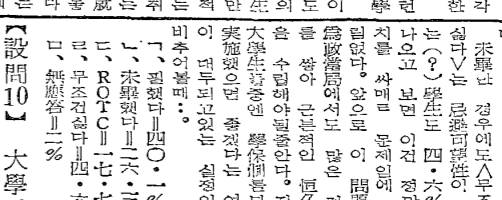 未畢한 경우에도∧무조
싫다∨는 忌避可望性이
는(?)學生도 四·六%
나오고 보면 이건 정말
치를 싸매고 문제일에
림없다。앞으로 이 問題
爲政當局에서도 많은
를 쌓아 근본적인 恒久
을 수립해야될줄안다。
大學生들중엔 學保制를
実施했으면 좋겠다는
이 대두되고있는 실정인
비추어볼때…。
ㄱ、필했다=四〇·一%
ㄴ、未畢했다=二六·三
ㄷ、ROTC=一七·七
ㄹ、무조건싫다=四·
ㅁ、無應答=二%
【設問10】 大學